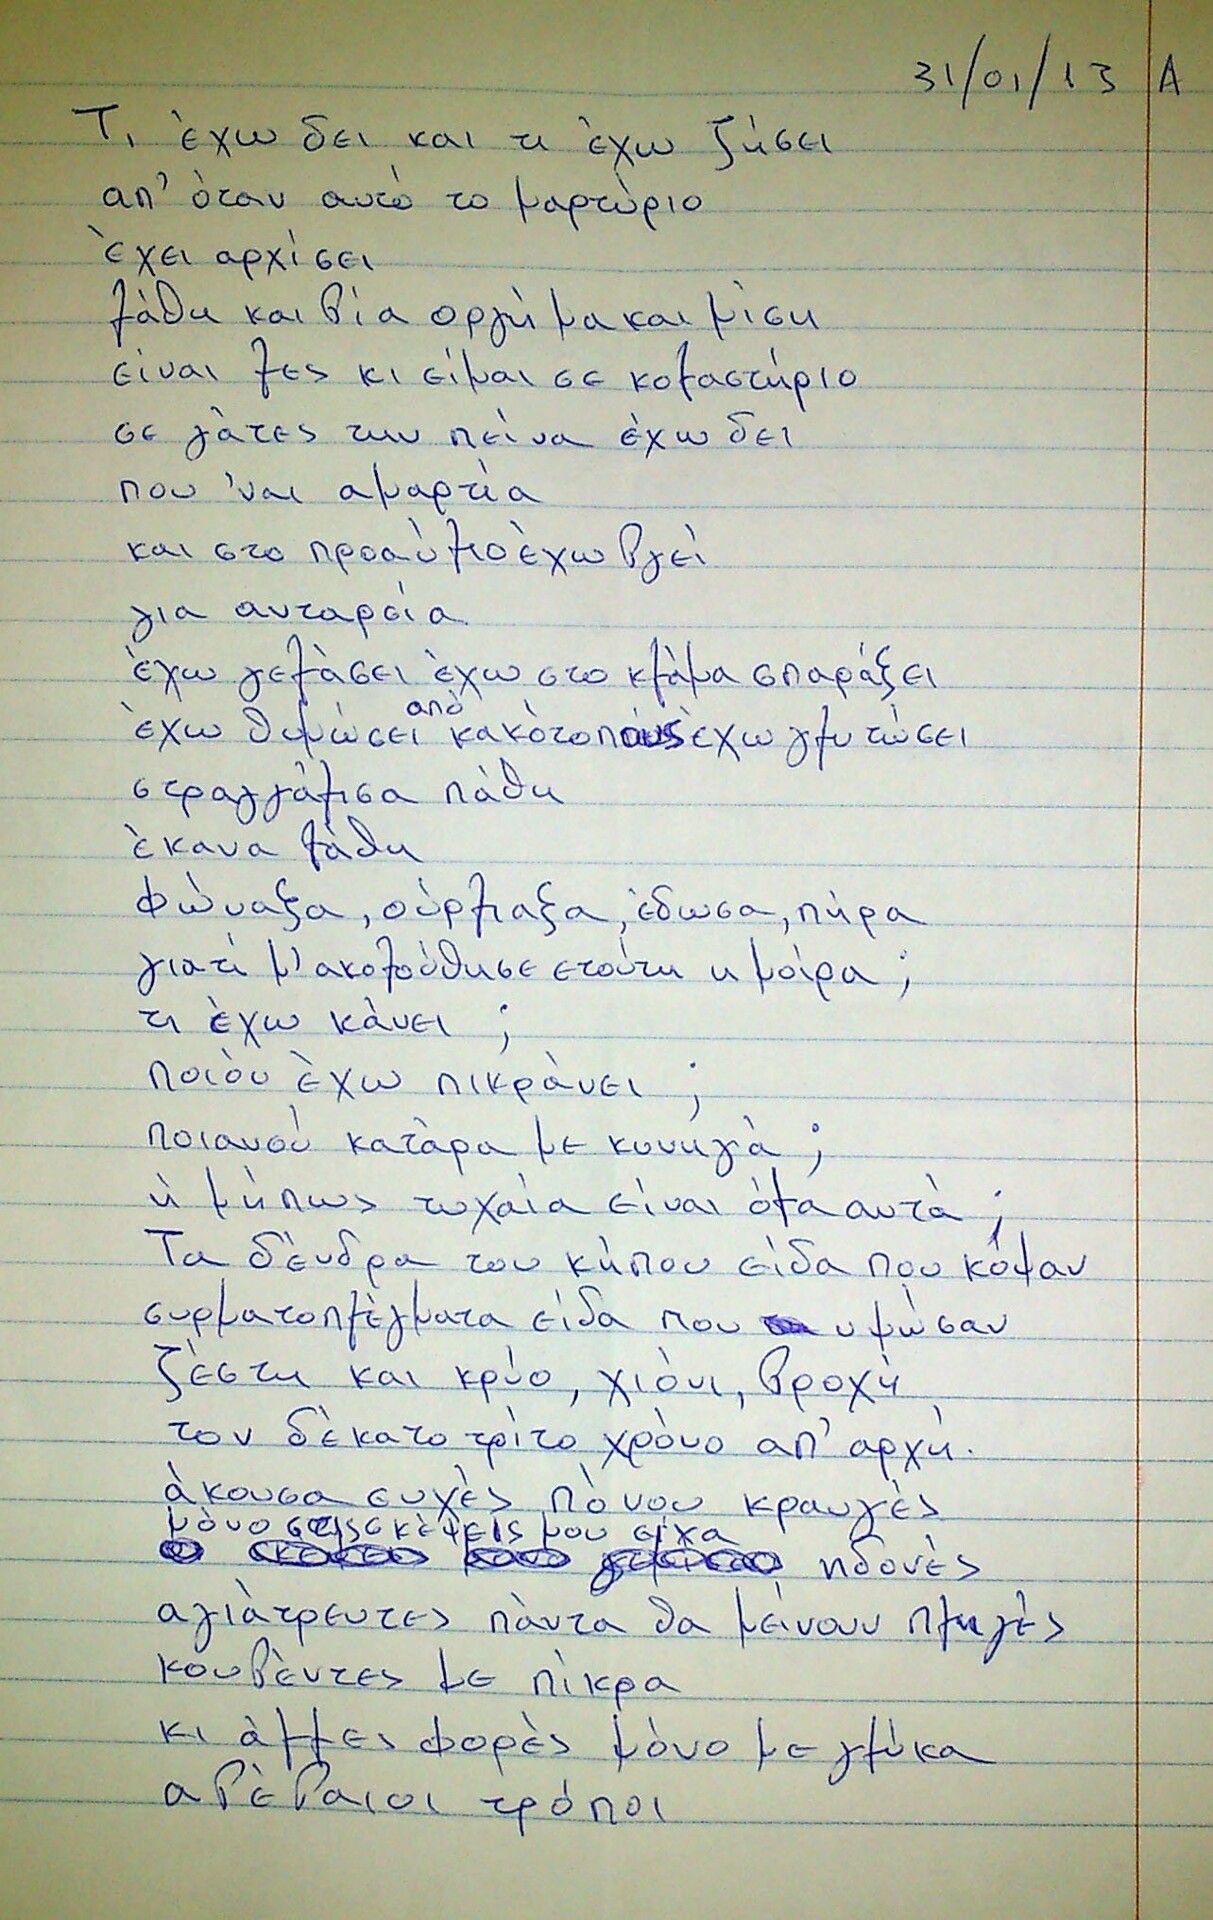 31/01/13 A
Τι έχω δει και τι έχω ζήσει
απ' όταν αυτό το μαρτύριο
έχει αρχίσει
λάθη και βία οργή μα και μίση
είναι λες κι είμαι σε κολαστήριο
σε γάτες την πείνα έχω δει
που 'ναι αμαρτία
και στο προαύλιο έχω βγεί
για ανταρσία
έχω γελάσει έχω στο κλάμα σπαράξει
έχω θυμώσει από κακότοπους έχω γλυτώσει
στραγγάλισα πάθη
έκανα λάθη
φώναξα, ούρλιαξα, έδωσα, πήρα
γιατί μ' ακολούθησε ετούτη η μοίρα;
τι έχω κάνει;
ποιόν έχω πικράνει;
ποιανού κατάρα με κυνηγά;
ή μήπως τυχαία είναι όλα αυτά;
Τα δένδρα του κήπου είδα που κόψαν
συρματοπλέγματα είδα που υψώσαν
ζέστη και κρύο, χιόνι, βροχή
τον δέκατο τρίτο χρόνο απ' αρχή.
άκουσα ευχές πόνου κραυγές
μόνο στις σκέψεις μου είχα ηδονές
αγιάτρευτες πάντα θα μείνουν πληγές
κουβέντες με πίκρα
κι άλλες φορές μόνο με γλύκα
αβέβαιοι τρόποι